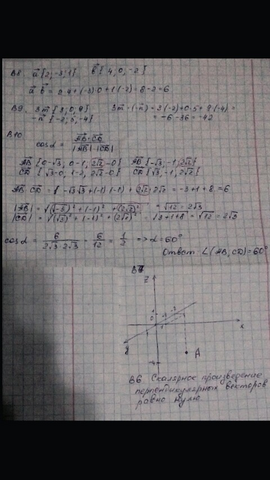 В8. a⃗{2;-3;1}, b⃗{4;0;-2}
a⃗ b⃗ = 2·4+(-3)·0+1·(-2) = 8-2 = 6
В9.
-6-36 = -42
В10
cos α = AB·CD / |AB|·|CD|
AB {0-√3, 0-1, 2√2-0} AB{-√3,-1;2√2}
CD {√3-0, 1-2, 2√2-0} CD{√3,-1,2√2}
-3+1+8 = 6
|AB| = √(-√3)²+(-1)²+(2√2)² = √12 = 2√3
|CD| = √(√3)²+(-1)²+(2√2)² = √3+1+8 = √12 = 2√3
cos α = 6/2√3·2√3 = 6/12 = 1/2 => α = 60°
Ответ: ∠(AB,CD) = 60°
В7
z
x
A
В6 Скалярное произведение
перпендикулярных векторов
равно нулю.